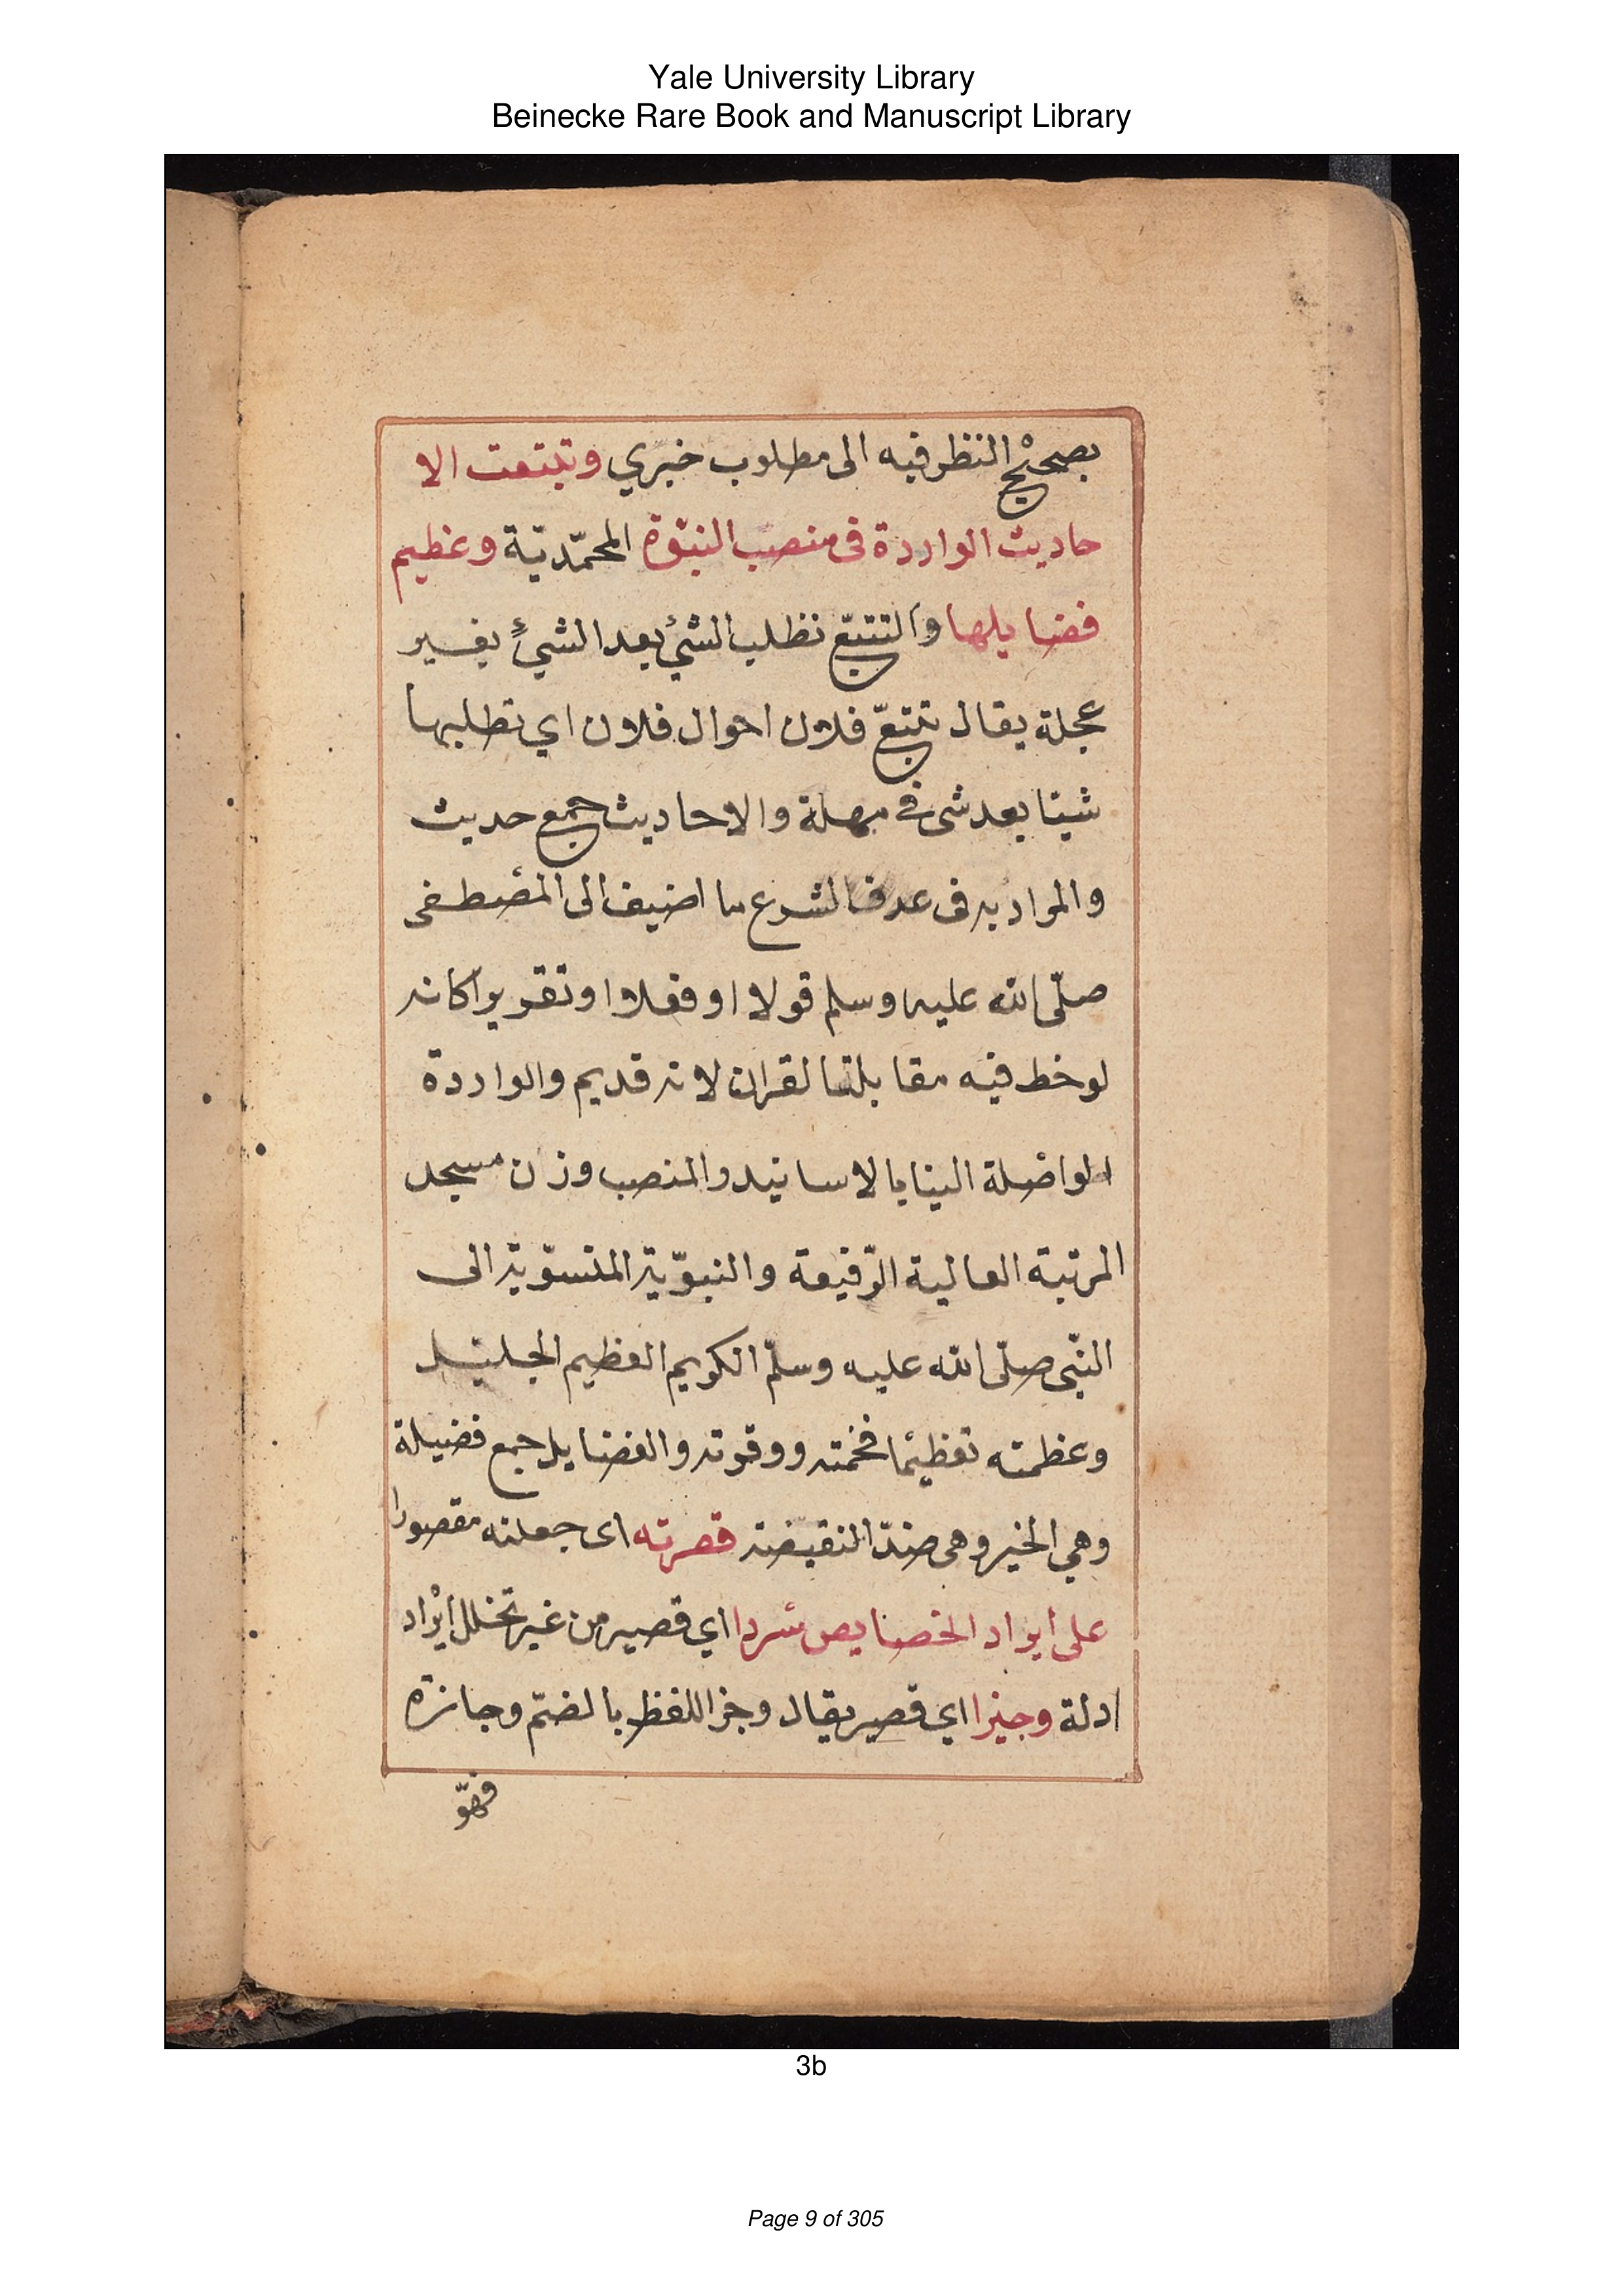 Yale University Library
Beinecke Rare Book and Manuscript Library
بصحيْح النظر فيه الى مطلوب خبري وتبتعت الا
حاديث الواردة فى منصب النبوّة المحمّديّة وعظيم
فضايلها والتتبّع نظلب الشئ بعد الشيءٍ بغير
عجلة يقال تتبعّ فلان احوال فلان اي تطلبها
شيئا بعد شى في مهلة والاحاديث جمع حديث
والمراد به فى عرف الشرع ما اضيف الى المصطفى
صلّى الله عليه وسلم قولا او فعلا او تقريرا كانه
لوخط فيه مقابلته القران لانه قديم والواردة
الواصلة الينا بالاسانيد والمنصب وزن مسجد
المرتبة العالية الرّفيعة والنبوّية المنسوّبة الى
النبّى صلّى الله عليه وسلّم الكريم العظيم الجليل
وعظمته تعظيمًا فخمته ووقرته والفضايل جمع فضيلة
وهي الخير وهى ضدّ النقيضة قصرته اى جعلته مقصورا
على ايراد الخصايص سردا اي قصير من غير تخلل ايْراد
ادلة وجيزا اي قصير يقال وجز اللفظ بالضمّ وجازة
فهوّ
3b
Page 9 of 305